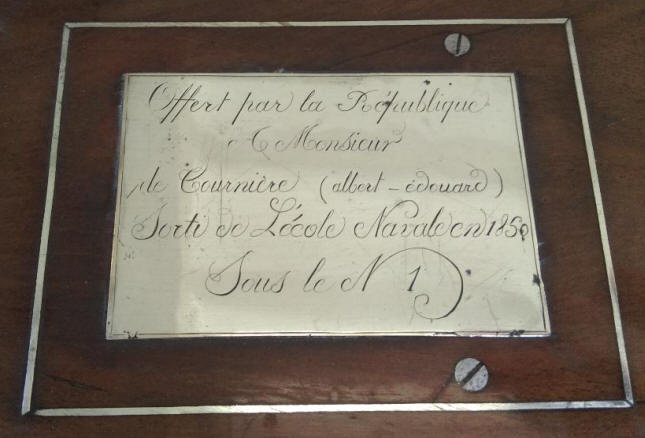 Offert par la République
A Monsieur
de Cournière (albert - édouard)
Sorti de L'école Navale en 1850
Sous le N 1